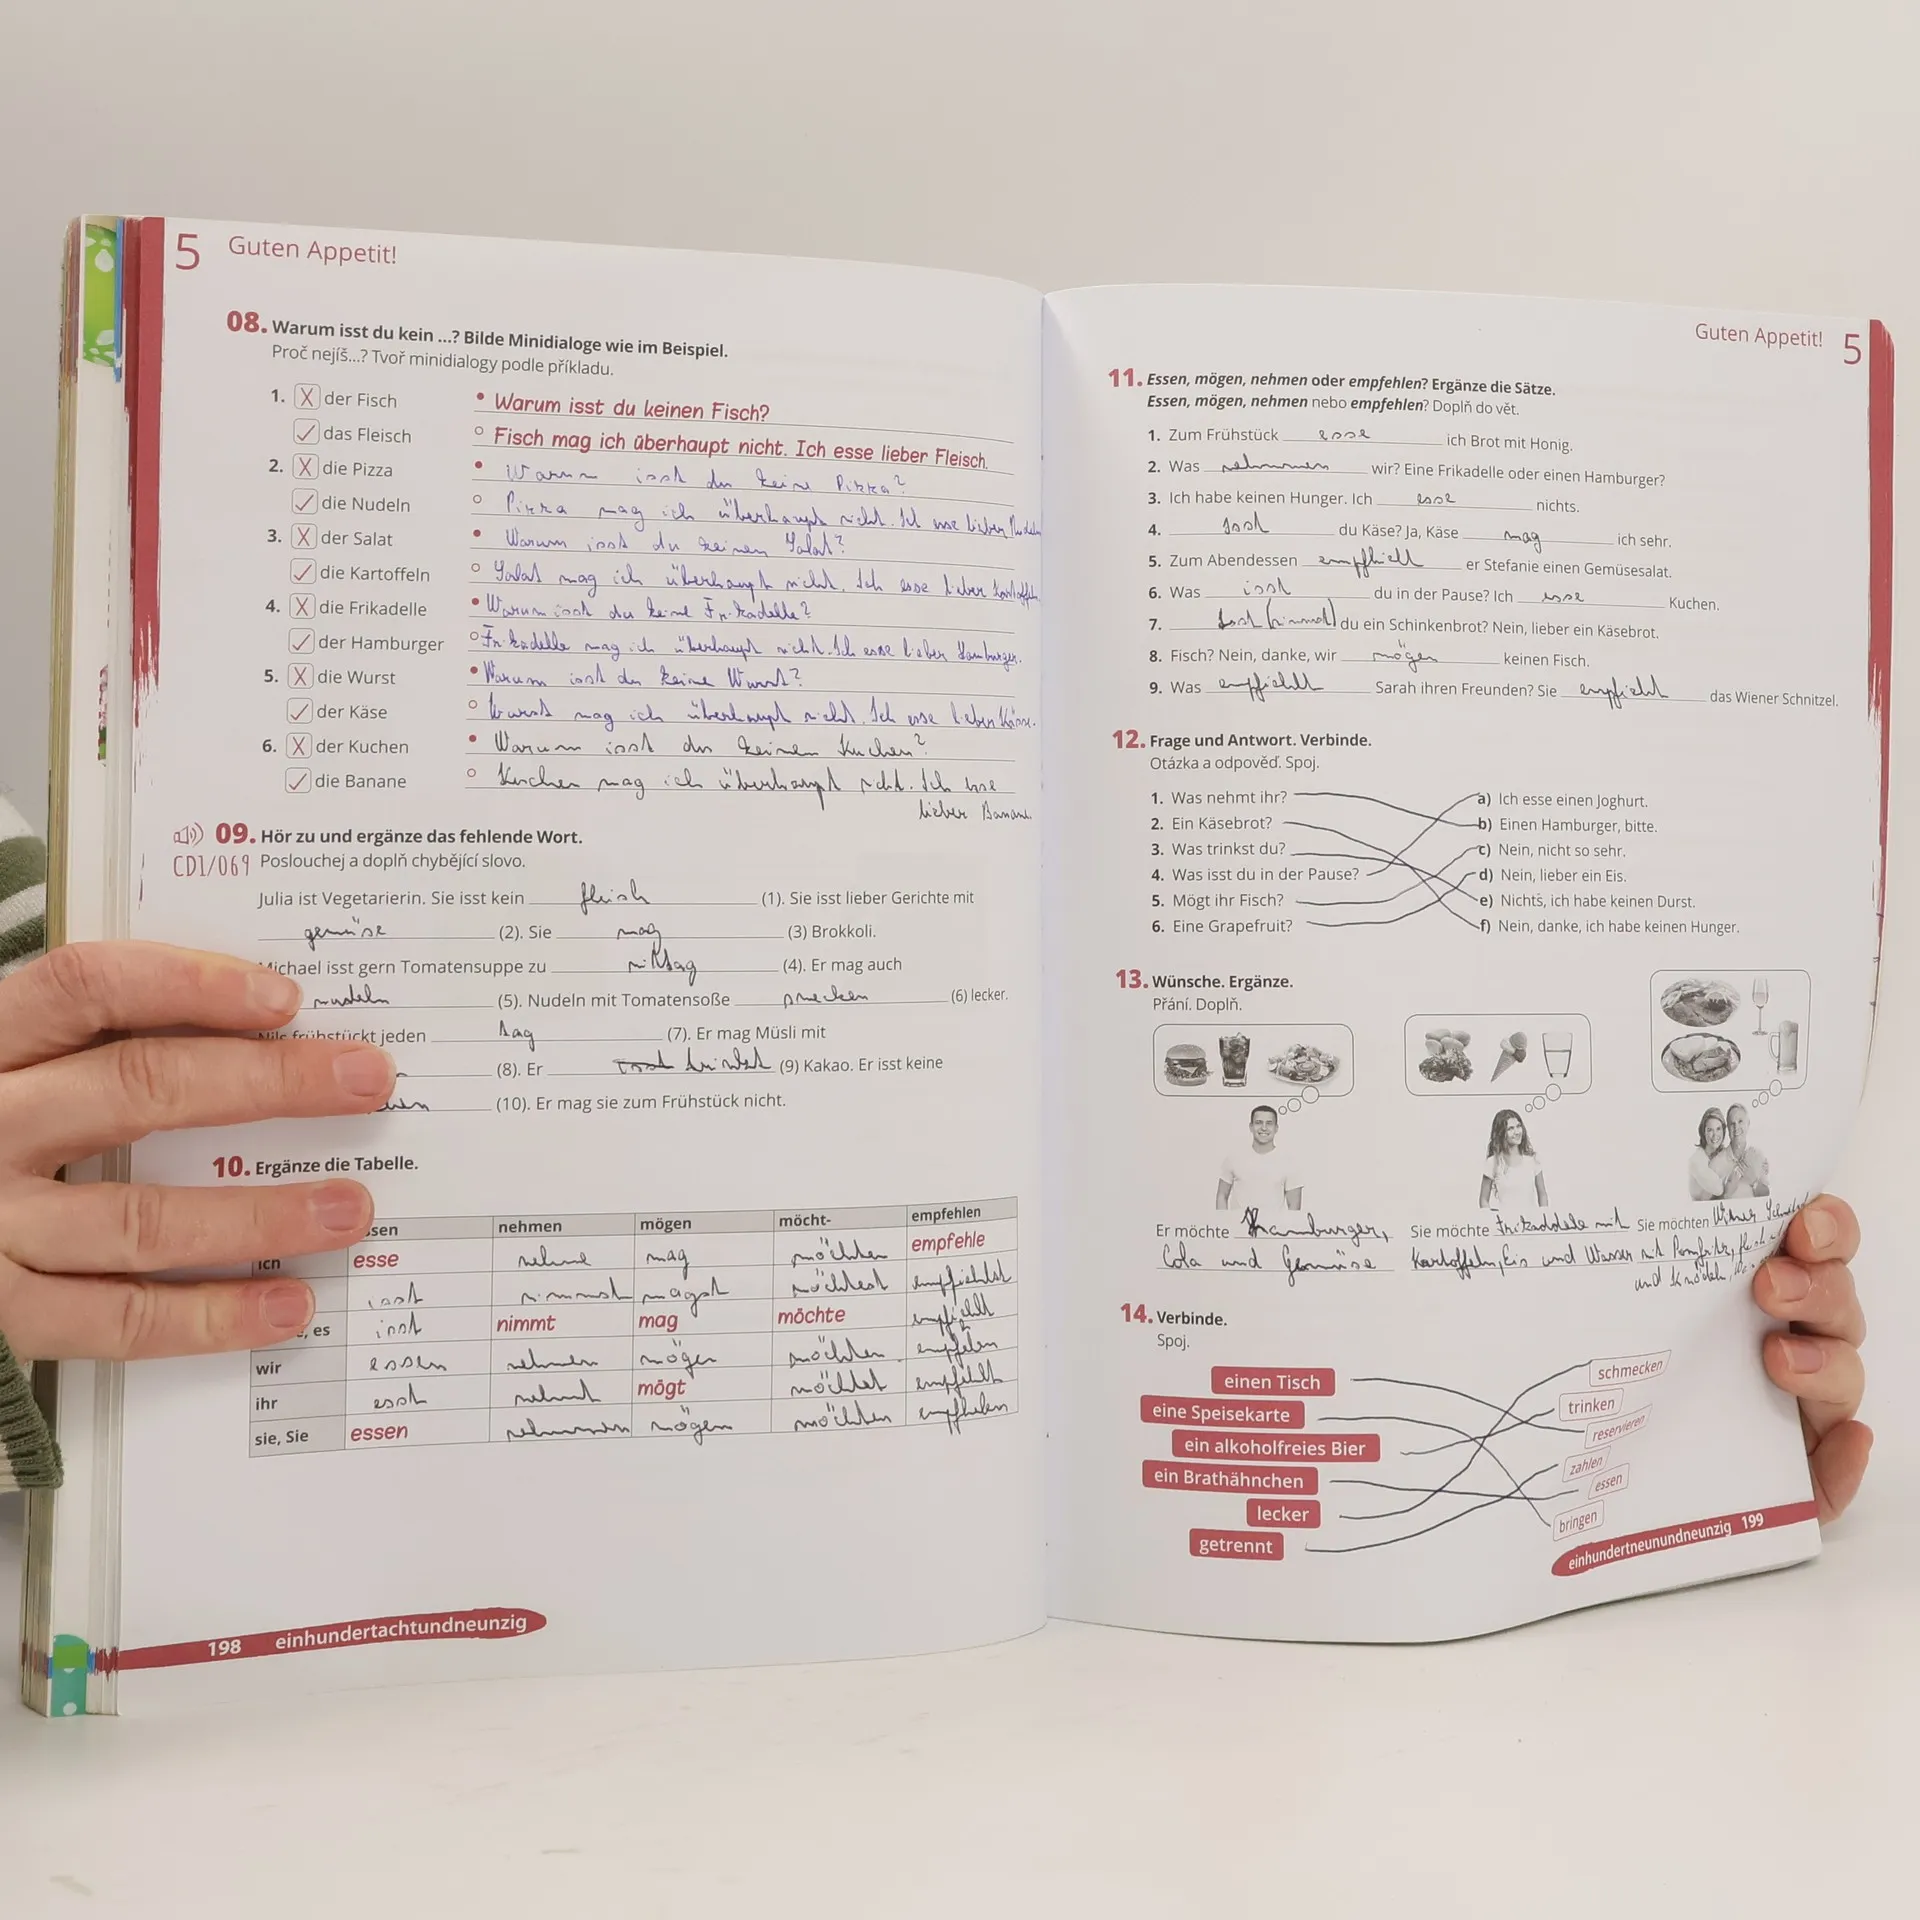 5 Guten Appetit!
08. Warum isst du kein ...? Bilde Minidialoge wie im Beispiel.
Proč nejíš...? Tvoř minidialogy podle příkladu.
1. X der Fisch • Warum isst du keinen Fisch?
das Fleisch ○ Fisch mag ich überhaupt nicht. Ich esse lieber Fleisch.
2. X die Pizza • Warum isst du keine Pizza?
die Nudeln ○ Pizza mag ich überhaupt nicht. Ich esse lieber Nudeln
3. X der Salat • Warum isst du keinen Salat?
die Kartoffeln ○ Salat mag ich überhaupt nicht. Ich esse lieber Kartoffeln.
4. X die Frikadelle • Warum isst du keine Frikadelle?
der Hamburger ○ Frikadelle mag ich überhaupt nicht. Ich esse lieber Hamburger.
5. X die Wurst • Warum isst du keine Wurst?
der Käse ○ Wurst mag ich überhaupt nicht. Ich esse lieber Käse.
6. X der Kuchen • Warum isst du keinen Kuchen?
die Banane ○ Kuchen mag ich überhaupt nicht. Ich esse
lieber Banane.
09. Hör zu und ergänze das fehlende Wort.
CD1/069 Poslouchej a doplň chybějící slovo.
Julia ist Vegetarierin. Sie isst kein fleisch (1). Sie isst lieber Gerichte mit
gemüse (2). Sie mag (3) Brokkoli.
Michael isst gern Tomatensuppe zu mittag (4). Er mag auch
nudeln (5). Nudeln mit Tomatensoße (6) lecker.
Nils frühstückt jeden tag (7). Er mag Müsli mit
(8). Er trinkt (9) Kakao. Er isst keine
(10). Er mag sie zum Frühstück nicht.
10. Ergänze die Tabelle.
nehmen mögen möcht- empfehlen
ich esse nehme mag möchten empfehle
isst nimmst magst möchtest empfiehlst
es isst nimmt mag möchte empfiehlt
wir essen nehmen mögen möchten
ihr esst nehmt mögt möchtet
sie, Sie essen nehmen mögen möchten
198 einhundertachtundneunzig
Guten Appetit! 5
11. Essen, mögen, nehmen oder empfehlen? Ergänze die Sätze.
Essen, mögen, nehmen nebo empfehlen? Doplň do vět.
1. Zum Frühstück esse ich Brot mit Honig.
2. Was nehmen wir? Eine Frikadelle oder einen Hamburger?
3. Ich habe keinen Hunger. Ich esse nichts.
4. Isst du Käse? Ja, Käse mag ich sehr.
5. Zum Abendessen er Stefanie einen Gemüsesalat.
6. Was isst du in der Pause? Ich esse Kuchen.
7. Isst (nimmst) du ein Schinkenbrot? Nein, lieber ein Käsebrot.
8. Fisch? Nein, danke, wir mögen keinen Fisch.
9. Was empfiehlt Sarah ihren Freunden? Sie empfiehlt das Wiener Schnitzel.
12. Frage und Antwort. Verbinde.
Otázka a odpověď. Spoj.
1. Was nehmt ihr? a) Ich esse einen Joghurt.
2. Ein Käsebrot? b) Einen Hamburger, bitte.
3. Was trinkst du? c) Nein, nicht so sehr.
4. Was isst du in der Pause? d) Nein, lieber ein Eis.
5. Mögt ihr Fisch? e) Nichts, ich habe keinen Durst.
6. Eine Grapefruit? f) Nein, danke, ich habe keinen Hunger.
13. Wünsche. Ergänze.
Přání. Doplň.
Er möchte Hamburger, Sie möchte Frikadelle mit Sie möchten Wiener
Cola und Gemüse Kartoffeln, Eis und Wasser mit
und Knödeln,
14. Verbinde.
Spoj.
einen Tisch schmecken
eine Speisekarte trinken
ein alkoholfreies Bier reservieren
ein Brathähnchen zahlen
lecker essen
getrennt bringen
einhundertneunundneunzig 199